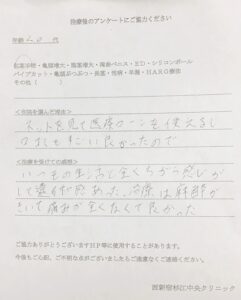 治療後のアンケートにご協力ください
年齢 20 代
包茎手術・亀頭増大・陰茎増大・海綿ペニス・ED・シリコンボール
パイプカット・亀頭ぶつぶつ・長茎・性病・早漏・HARG療法
その他（　　）
<当院を選んだ理由>
ネットを見て医療ローンを使えるし
口コミもすごい良かったので
<治療を受けての感想>
いつもの生活と全くちがう感じが
して違和感あった、治療は麻酔が
きいて痛みが全くなくて良かった
ご協力ありがとうございますHP等に使用することがあります。
今後もご心配、ご不明な点がございましたらご遠慮なくご連絡ください。
西新宿杉江中央クリニック